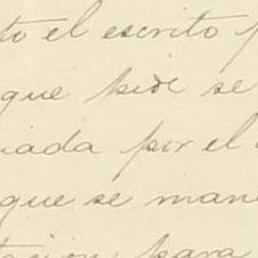 to el escrito
que pide se
iada por el
que se man
para